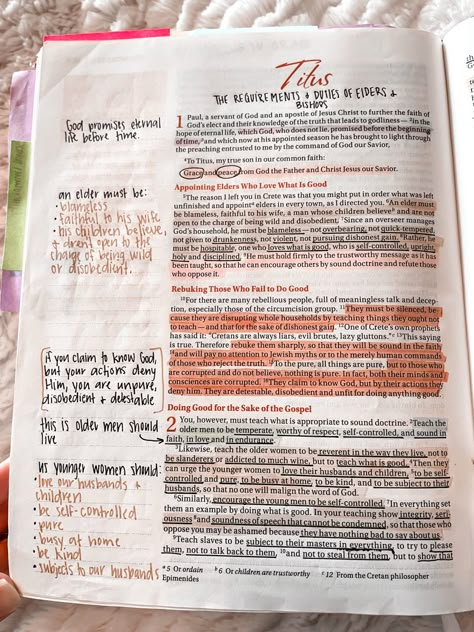 Titus
THE REQUIREMENTS & DUTIES OF ELDERS &
BISHOPS
God promises eternal
life before time.
1 Paul, a servant of God and an apostle of Jesus Christ to further the faith of
God's elect and their knowledge of the truth that leads to godliness— 2in the
hope of eternal life, which God, who does not lie, promised before the beginning
of time, 3and which now at his appointed season he has brought to light through
the preaching entrusted to me by the command of God our Savior,
4To Titus, my true son in our common faith:
Grace and peace from God the Father and Christ Jesus our Savior.
Appointing Elders Who Love What Is Good
5The reason I left you in Crete was that you might put in order what was left
unfinished and appoint a elders in every town, as I directed you. 6An elder must
be blameless, faithful to his wife, a man whose children believe b and are not
open to the charge of being wild and disobedient. 7Since an overseer manages
God's household, he must be blameless—not overbearing, not quick-tempered,
not given to drunkenness, not violent, not pursuing dishonest gain. 8Rather, he
must be hospitable, one who loves what is good, who is self-controlled, upright,
holy and disciplined. 9He must hold firmly to the trustworthy message as it has
been taught, so that he can encourage others by sound doctrine and refute those
who oppose it.
an elder must be:
• blameless
• faithful to his wife
• his children believe,
& arent open to the
charge of being wild
or disobedient.
Rebuking Those Who Fail to Do Good
10For there are many rebellious people, full of meaningless talk and decep-
tion, especially those of the circumcision group. 11They must be silenced, be-
cause they are disrupting whole households by teaching things they ought not
to teach—and that for the sake of dishonest gain. 12One of Crete's own prophets
has said it: "Cretans are always liars, evil brutes, lazy gluttons." c 13This saying
is true. Therefore rebuke them sharply, so that they will be sound in the faith
14and will pay no attention to Jewish myths or to the merely human commands
of those who reject the truth. 15To the pure, all things are pure, but to those who
are corrupted and do not believe, nothing is pure. In fact, both their minds and
consciences are corrupted. 16They claim to know God, but by their actions they
deny him. They are detestable, disobedient and unfit for doing anything good.
if you claim to know God,
but your actions deny
Him, you are unpure,
disobedient & detestable
Doing Good for the Sake of the Gospel
2 You, however, must teach what is appropriate to sound doctrine. 2Teach the
older men to be temperate, worthy of respect, self-controlled, and sound in
faith, in love and in endurance.
this is older men should
live
3Likewise, teach the older women to be reverent in the way they live, not to
be slanderers or addicted to much wine, but to teach what is good. 4Then they
can urge the younger women to love their husbands and children, 5to be self-
controlled and pure, to be busy at home, to be kind, and to be subject to their
husbands, so that no one will malign the word of God.
6Similarly, encourage the young men to be self-controlled. 7In everything set
them an example by doing what is good. In your teaching show integrity, seri-
ousness 8and soundness of speech that cannot be condemned, so that those who
oppose you may be ashamed because they have nothing bad to say about us.
9Teach slaves to be subject to their masters in everything, to try to please
them, not to talk back to them, 10and not to steal from them, but to show that
us younger women should:
• love our husbands &
children
• be self-controlled
• pure
• busy at home
• be kind
• subjects to our husbands
a 5 Or ordain b 6 Or children are trustworthy c 12 From the Cretan philosopher
Epimenides